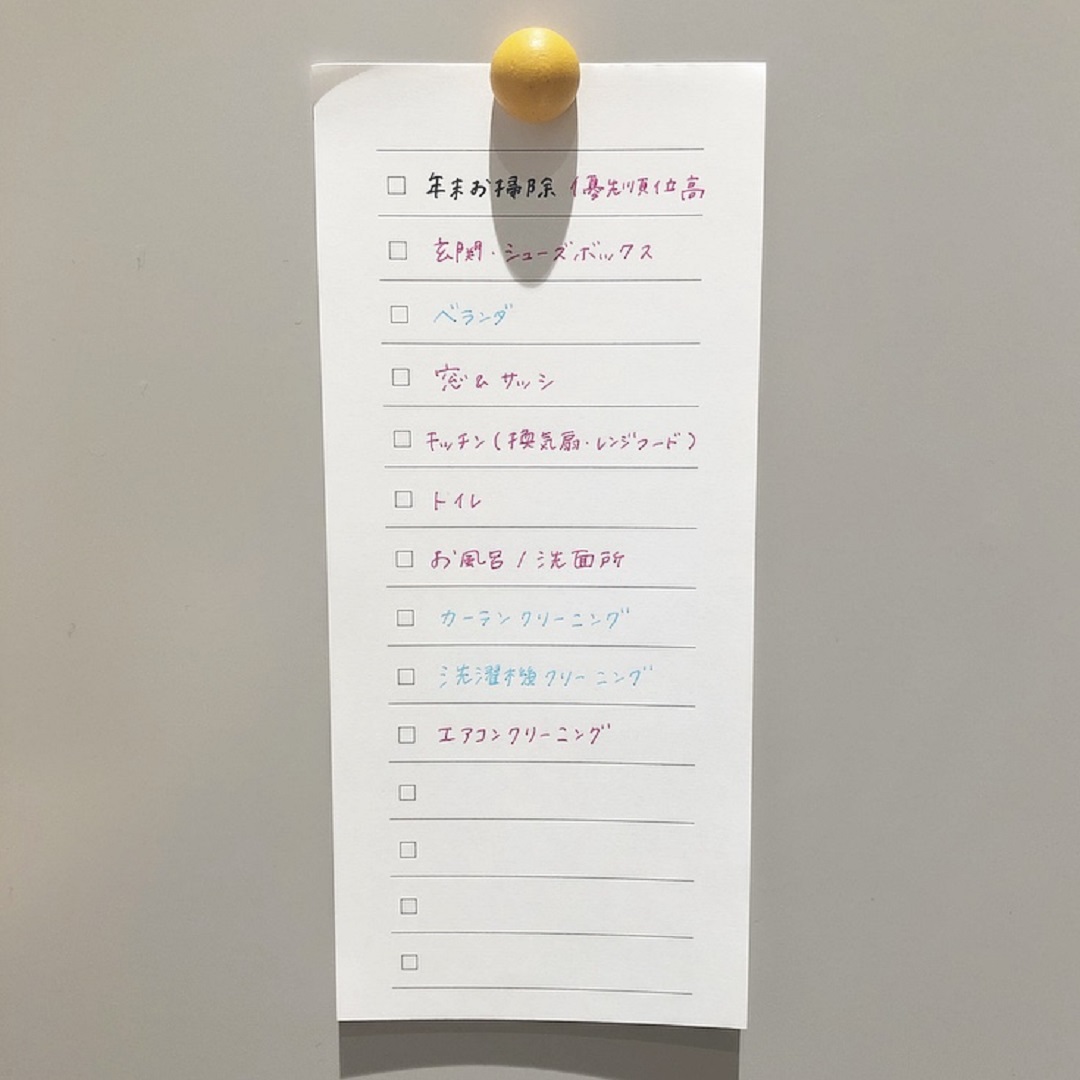 年末お掃除 優先順位高
玄関・シューズボックス
ベランダ
窓&サッシ
キッチン(換気扇・レンジフード)
トイレ
お風呂/洗面所
カーテンクリーニング
洗濯機クリーニング
エアコンクリーニング